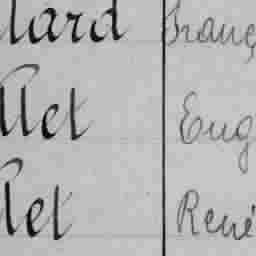 lard Franç
llet Eug
let René